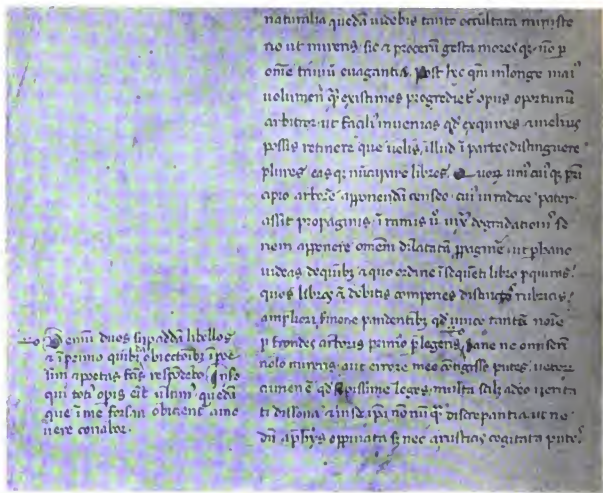 naturalia quedā uidebis tanto occultata miniſte
rio ut mireris ſic ⁊ procerū geſta moreſq; nō ꝑ
omē triuiū euagantia. Poſt hec qm̄ in longe mai᷒
uolumen q̄ exiſtimes progrediet᷑ opus oportunū
arbitror ut facili᷒ inuenias qđ exquires ⁊ melius
poſſis retinere que uelis, illud ī partes diſtinguere
plures eaſq; nūcupare libros. Quoꝝ uniciuq; prī
cipio arborē apponendā cenſeo. cui᷒ in radice pater
aſſit propaginis. ī ramis ū iuxͣ degradationis ſe
riem apponere omnem dilatatā ꝓpaginē ut ꝑ hanc
uideas de quibꝫ ⁊ quo ordine ī ſequēti libro ꝑquiras.
quos libros ⁊̄ debitis comperies diſtinctos rubricis
ampliori ſermone pandentibꝫ qđ unico tantū noīe
ꝑ frondes arboris primo ꝑlegeris. Sane ne omiſerī
nolo mireris aut errore meo cōtigiſſe putes. ueterū
crimen ē qđ ſepiſſime leges. multa ſcilꝫ adeo uerita
ti diſſona ⁊ in ſe ipā nō nūq̄ diſcrepantia. ut ne
dū a phỹs oppinata ſꝫ nec a ruſticis cogitata putes.
Demū duos ſuꝑ addā libellos
⁊ ī primo quibꝰdā obiectoribꝫ ī poe
ſim ⁊ poetas fc̄is reſpōdebo. In ſcđo
qui toti᷒ opis erit ultim᷒ quedā
que ī me forſan obicient amo
uere conabor.